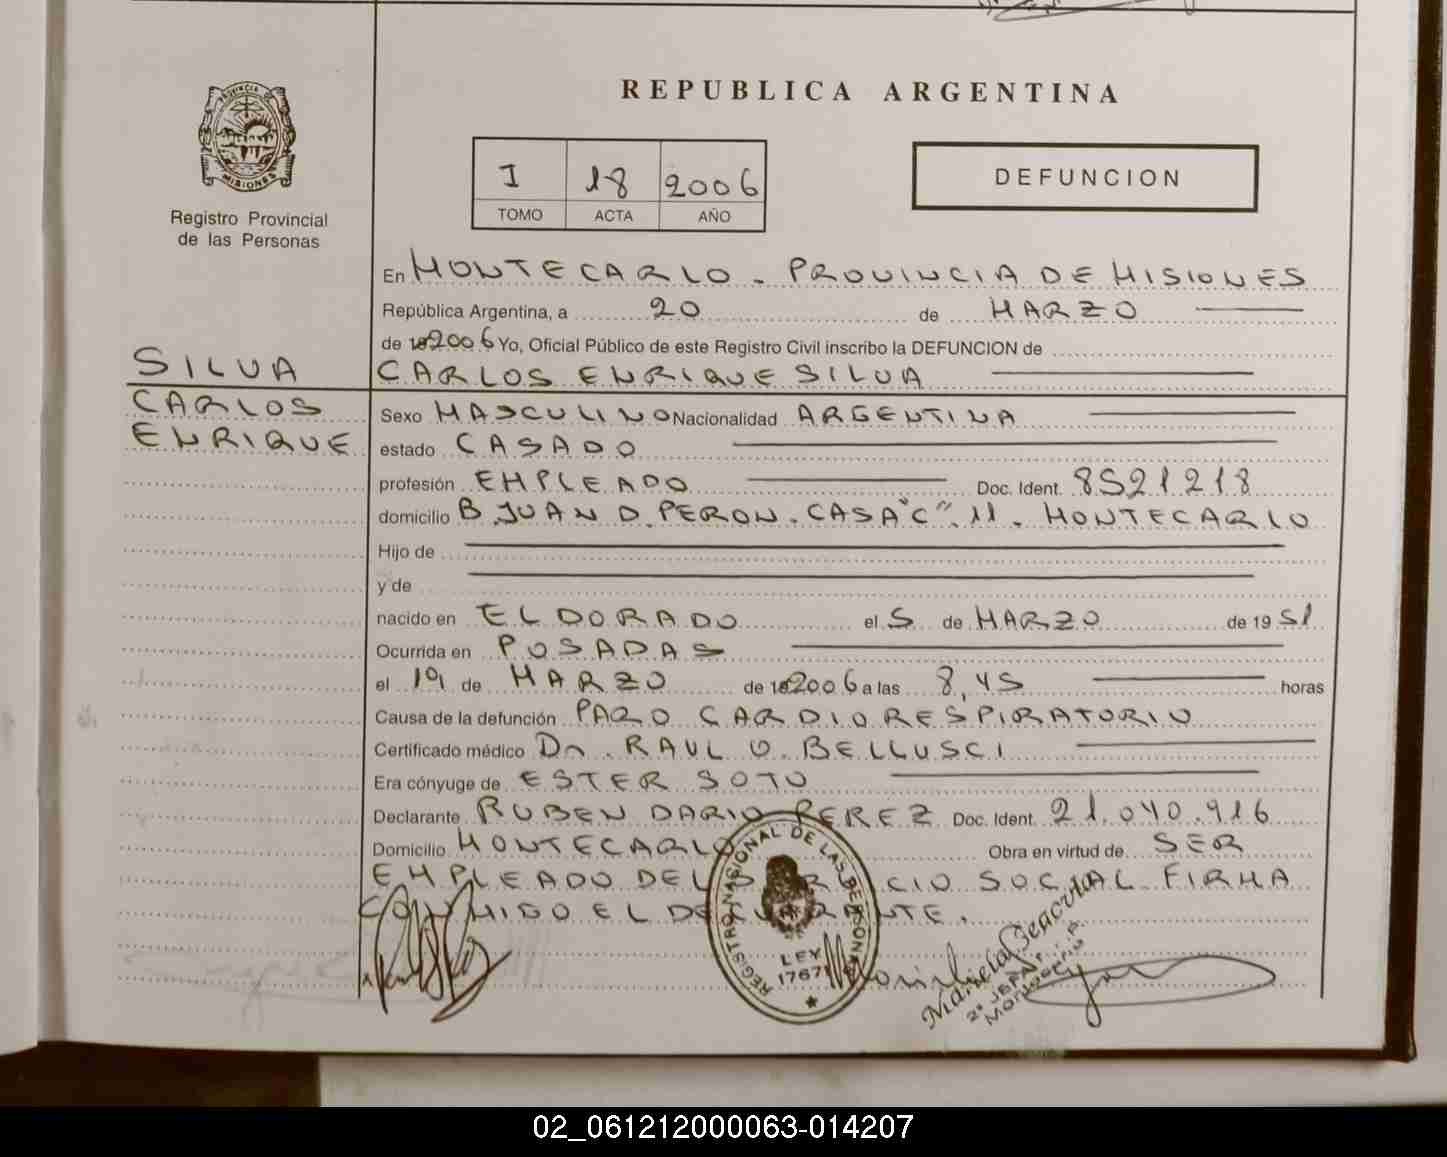 REPUBLICA ARGENTINA
PROVINCIA DE MISIONES
Registro Provincial
de las Personas
I 18 2006
TOMO ACTA AÑO
DEFUNCION
En MONTECARLO - PROVINCIA DE MISIONES
República Argentina, a 20 de MARZO
de 2006 Yo, Oficial Público de este Registro Civil inscribo la DEFUNCION de
SILVA
CARLOS ENRIQUE SILVA
CARLOS
ENRIQUE
Sexo MASCULINO Nacionalidad ARGENTINA
estado CASADO
profesión EMPLEADO Doc. Ident. 8521218
domicilio B. JUAN D. PERON. CASA "C". 11. MONTECARLO
Hijo de
y de
nacido en ELDORADO el 5 de MARZO de 1951
Ocurrida en POSADAS
el 19 de MARZO de 2006 a las 8,45 horas
Causa de la defunción PARO CARDIORESPIRATORIO
Certificado médico Dr. RAUL O. BELLUSCI
Era cónyuge de ESTER SOTO
Declarante RUBEN DARIO PEREZ Doc. Ident. 21.040.916
Domicilio MONTECARLO Obra en virtud de SER
EMPLEADO DEL SERVICIO SOCIAL. FIRMA
CONMIGO EL DECLARANTE.
REGISTRO NACIONAL DE LAS PERSONAS
LEY
17671
02_061212000063-014207